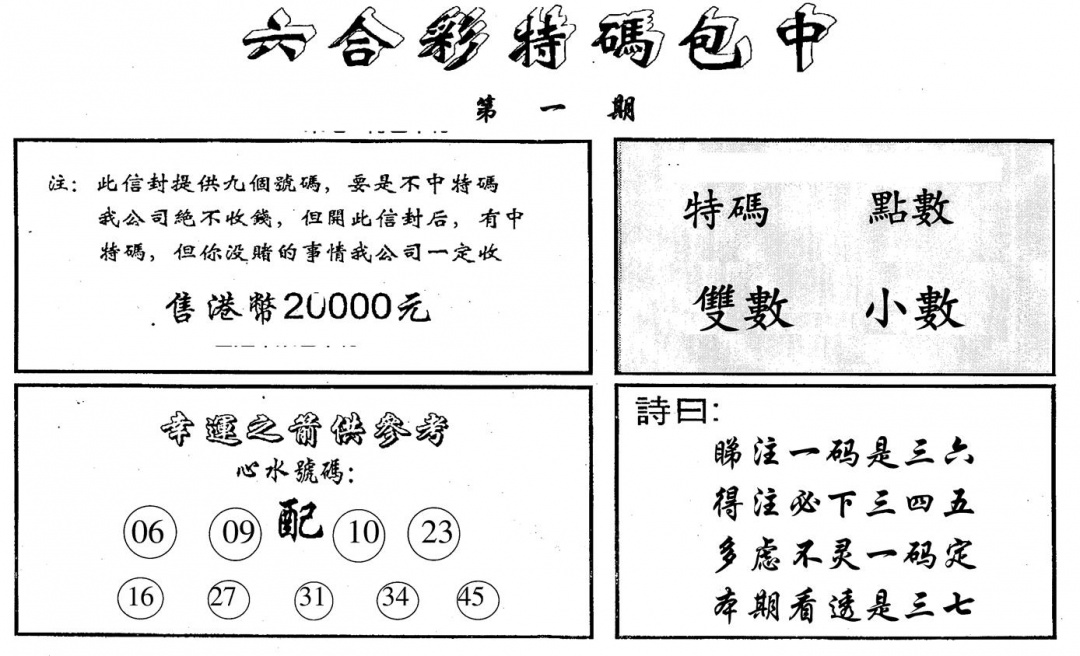 六合彩特碼包中
第一期
注：此信封提供九個號碼，要是不中特碼
我公司絕不收錢，但開此信封后，有中
特碼，但你没賭的事情我公司一定收
售港幣20000元
特碼 點數
雙數 小數
幸運之箭供參考
心水號碼：
06 09 配 10 23
16 27 31 34 45
詩曰：
睇注一码是三六
得注必下三四五
多虑不灵一码定
本期看透是三七